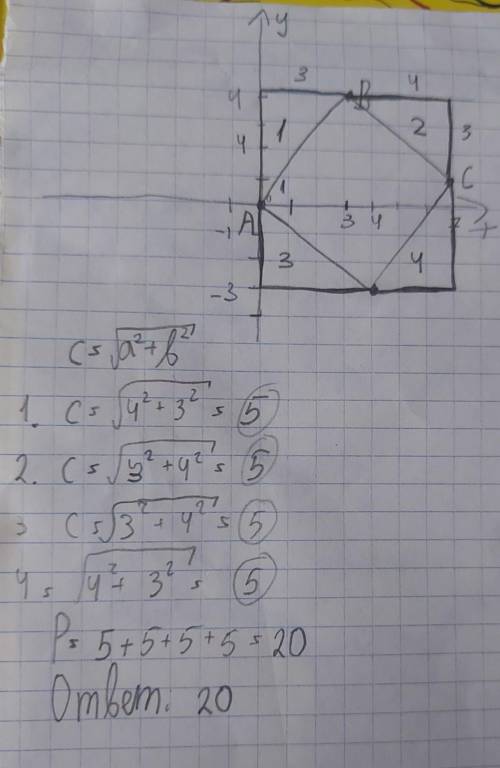 y
3 4
4 B
4 1 2 3
1 C
A
-1 1 3 4 7 x
3 4
-3
c = √a² + b²
1. c = √4² + 3² = 5
2. c = √3² + 4² = 5
3 c = √3² + 4² = 5
4 = √4² + 3² = 5
P = 5 + 5 + 5 + 5 = 20
Ответ: 20